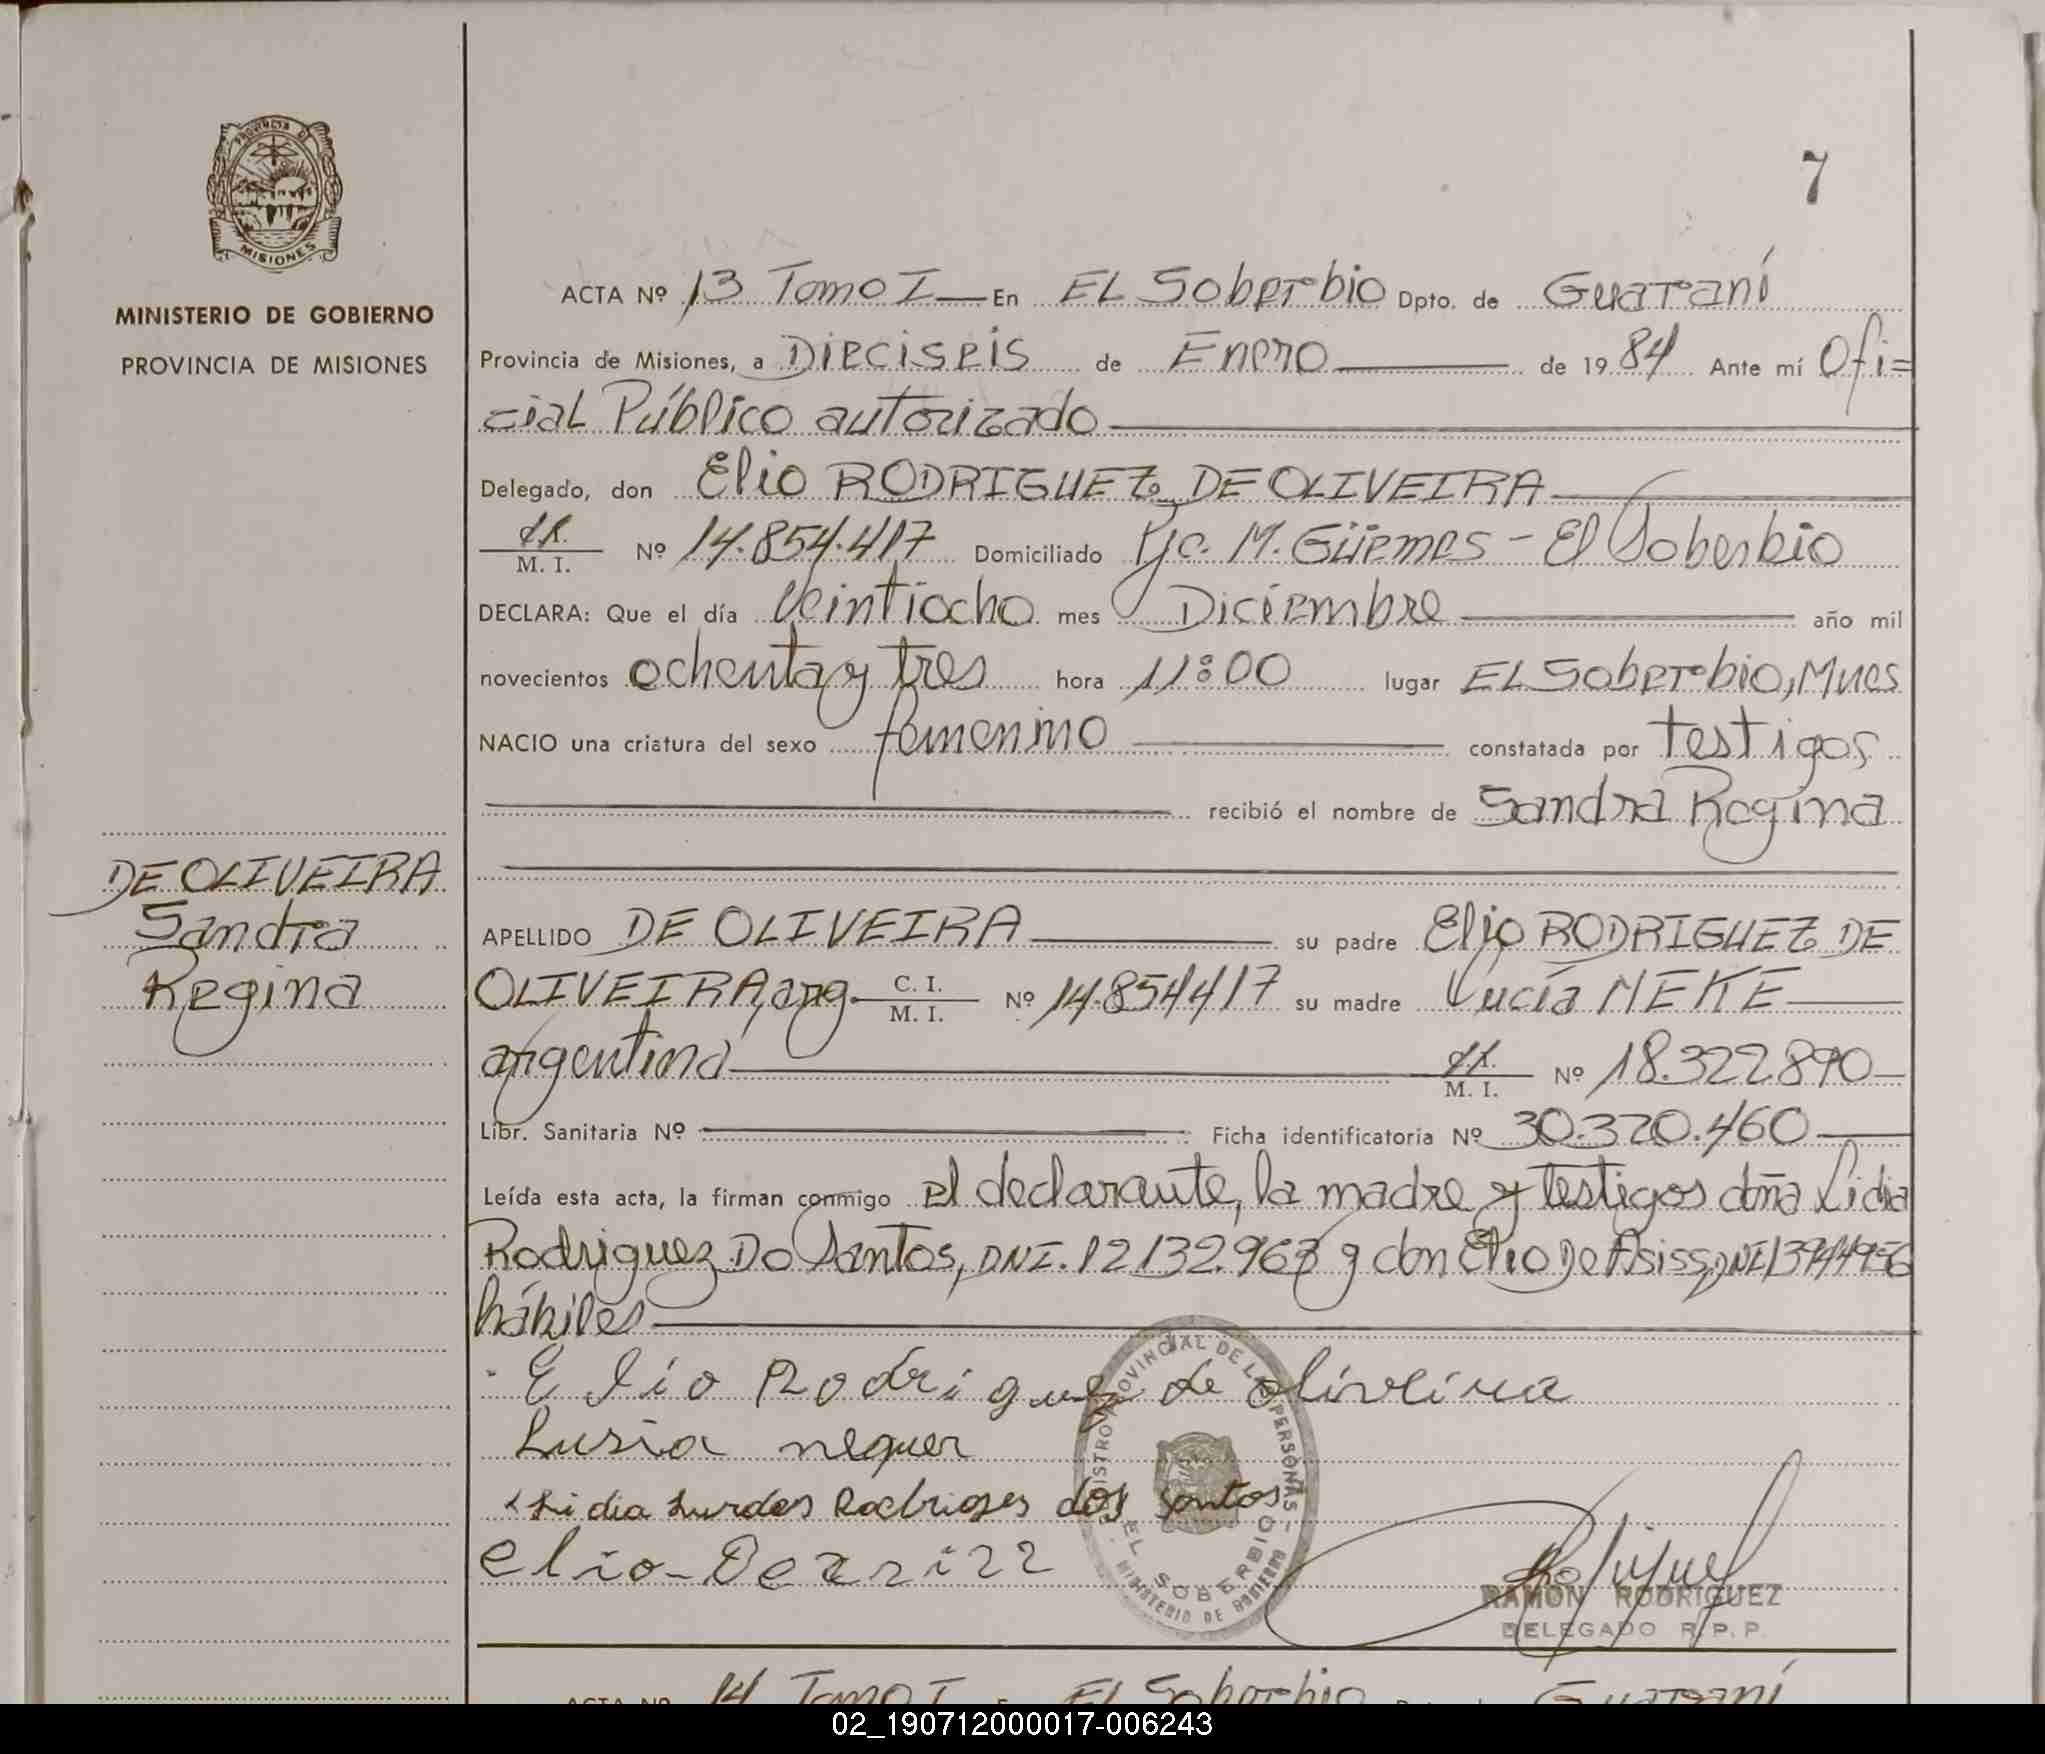 7
PROVINCIA DE
MISIONES
MINISTERIO DE GOBIERNO
PROVINCIA DE MISIONES
DE OLIVEIRA
Sandra
Regina
ACTA Nº 13 Tomo I En EL Soberbio Dpto. de Guaraní
Provincia de Misiones, a Dieciseis de Enero de 1984 Ante mí Ofi=
cial Público autorizado
Delegado, don Elio RODRIGUEZ DE OLIVEIRA
M. I. Nº 14.854.417 Domiciliado Pje. M. Güemes - El Soberbio
DECLARA: Que el día Veintiocho mes Diciembre año mil
novecientos ochenta y tres hora 11:00 lugar EL Soberbio, Mnes
NACIO una criatura del sexo femenino constatada por testigos
recibió el nombre de Sandra Regina
APELLIDO DE OLIVEIRA su padre Elio RODRIGUEZ DE
OLIVEIRA, arg. C. I. M. I. Nº 14.854417 su madre Lucía NEKE
argentina M. I. Nº 18.322890
Libr. Sanitaria Nº Ficha identificatoria Nº 30.370.460
Leída esta acta, la firman conmigo el declarante, la madre y testigos doña Lidia
Rodriguez Do Santos, DNI. 12132.963 y don Elio De Asiss, DNI
hábiles
Elio Rodriguez de oliveira
Lusia nequer
Lidia Lurdes Rodrigses dos santos
elio
REGISTRO PROVINCIAL DE LAS PERSONAS - EL SOBERBIO
MINISTERIO DE GOBIERNO
RAMON RODRIGUEZ
DELEGADO R. P. P.
ACTA Nº 14 Tomo I En EL Soberbio Dpto. de Guaraní
02_190712000017-006243